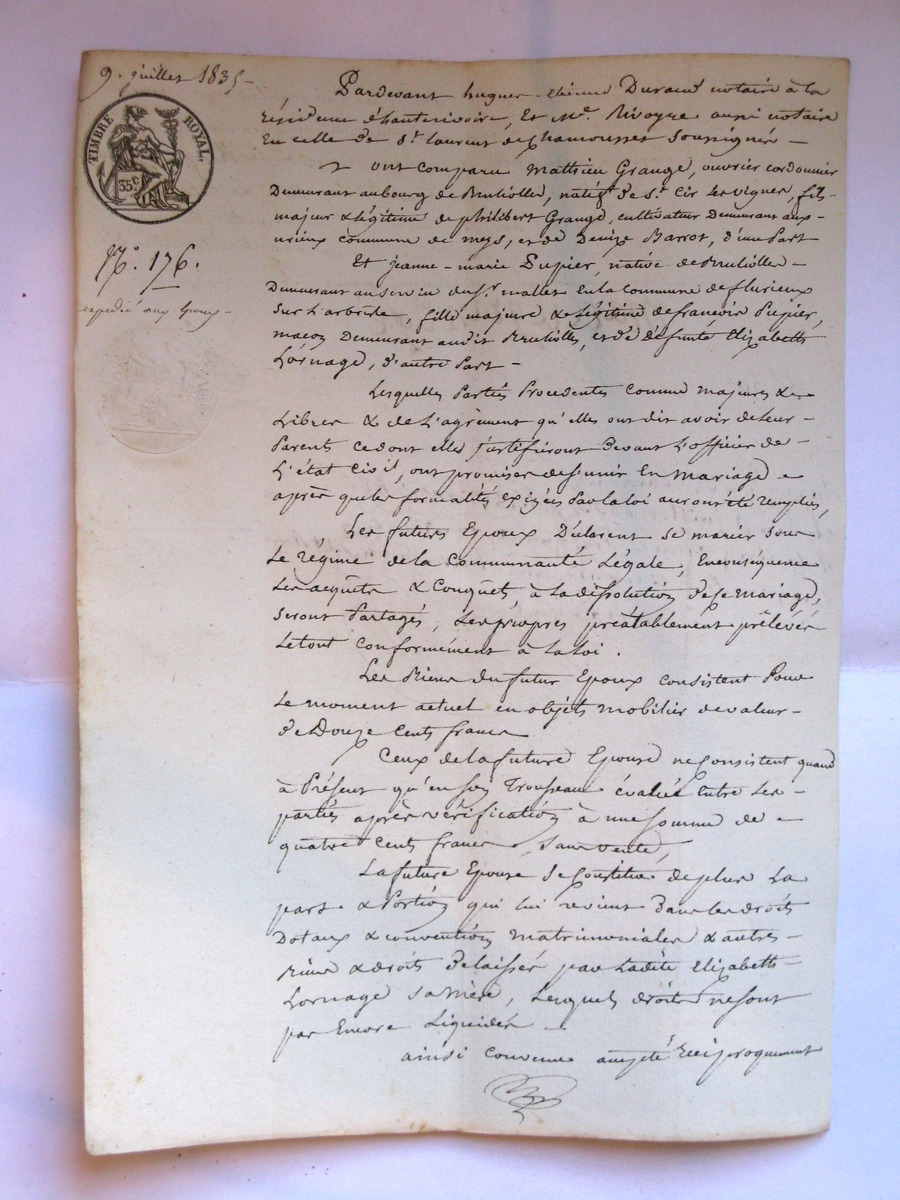 9. juillet 1835 -
TIMBRE ROYAL.
35 c
N.º 176.
expedié aux Epoux -
Pardevant hugues étienne Durand notaire à la
résidence d'hauterivoire, Et Me. Rivoyre aussi notaire
En celle de St. laurent de chamousset soussignés -
ont comparu Mathieu Grange, ouvrier cordonnier
Demeurant au bourg de Brulliolles, natif de St. Cir les vignes, fils
majeur & légitime de philibert Grange, cultivateur Demeurant aux
commune de meys, et de Denize Barrot, d'une Part
Et jeanne-marie Pupier, native de Brulliolles -
Demeurant au service du Sr. mallet En la commune de fleurieux
sur l'arbresle, fille majeure & légitime de françois Pupier,
maçon Demeurant audit Brullioles, et de défunte Elizabeth
Lornage, d'autre Part -
Lesquelles Parties Procédentes comme majeures &
Libres & de L'agrément qu'elles ont dit avoir de leur
Parents ce dont elles justifieront Devant L'officier de
L'état Civil, ont promises de s'unir En mariage
après que les formalités exigées Par la loi auront été remplies,
Les futurs Epoux Déclarent se marier sous
Le régime de la communauté Légale, En conséquence
Les acquêts & Conquêts à la dissolution de ce mariage,
seront Partagés, Les propres préalablement prélevés
Le tout conformément à la loi.
Les Biens du futur Epoux consistent Pour
Le moment actuel en objets mobilier de valeur -
de Douze Cents francs
Ceux de la future Epouse ne consistent quand
à Présent qu'en son Trousseau évalué Entre les -
parties après vérification à une somme de
quatre Cents francs, sans vente,
La future Epouse se constitue de plus La
part & Portion qui lui revient Dans les droits
Dotaux & conventions matrimoniales & autres -
Biens & droits Delaissés par Ladite Elizabeth
Lornage sa Mère, Lesquels droits ne sont
pas Encore Liquidés
ainsi convenu accepté réciproquement